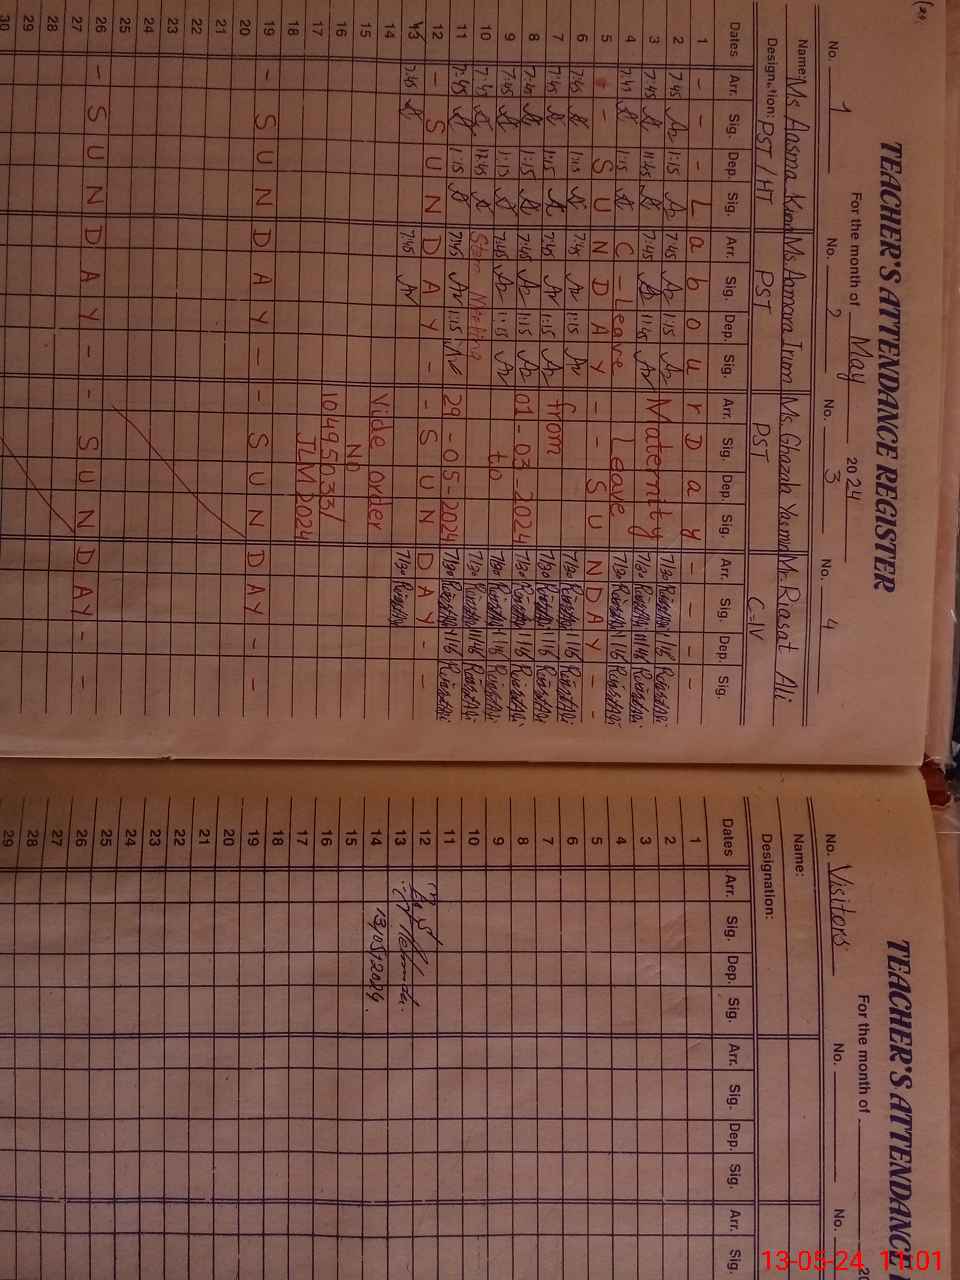 TEACHER'S ATTENDANCE REGISTER
For the month of May 2024
No. 1 No. 2 No. 3 No. 4
Name: Ms. Aasma Kiran Ms. Aamara Irum Ms. Ghazala Yasmin Mr. Riasat Ali
Designation: PST/HT PST PST C-IV
Dates Arr. Sig. Dep. Sig. Arr. Sig. Dep. Sig. Arr. Sig. Dep. Sig. Arr. Sig. Dep. Sig.
1 - - - L a b o u r D a y - - - -
2 7:45 1:15 7:45 1:15 7/30 Riasat Ali 1/15 Riasat Ali
3 7:45 11:45 7:45 11:45 Maternity 7/30 Riasat Ali 11/45 Riasat Ali
4 7:45 1:15 C - Leave Leave 7/30 Riasat Ali 1/15 Riasat Ali
5 - - S U N D A Y - - - S U N D A Y - -
6 7:45 1:15 7:45 1:15 7/30 Riasat Ali 1/15 Riasat Ali
7 7:45 1:15 7:45 1:15 from 7/30 Riasat Ali 1/15 Riasat Ali
8 7:45 1:15 7:45 1:15 01-03-2024 7/30 Riasat Ali 1/15 Riasat Ali
9 7:45 1:15 7:45 1:15 to 7/30 Riasat Ali 1/15 Riasat Ali
10 7:45 12:45 Stem Meeting 7/30 Riasat Ali 11/45 Riasat Ali
11 7:45 1:15 7:45 1:15 29-05-2024 7/30 Riasat Ali 1/15 Riasat Ali
12 - S U N D A Y - - S U N D A Y - -
13 7:45 7:45 7/30 Riasat Ali
14 Vide order
15 NO
16 10495033/
17 JLM 2024
18
19 - S U N D A Y - - S U N D A Y - -
20
21
22
23
24
25
26 - S U N D A Y - - S U N D A Y - -
27
28
29
30
TEACHER'S ATTENDANCE
For the month of 20
No. Visitors No. No.
Name:
Designation:
Dates Arr. Sig. Dep. Sig. Arr. Sig. Dep. Sig. Arr. Sig.
1
2
3
4
5
6
7
8
9
10
11
12
13
14 13/05/2024.
15
16
17
18
19
20
21
22
23
24
25
26
27
28
29
13-05-24 11:01